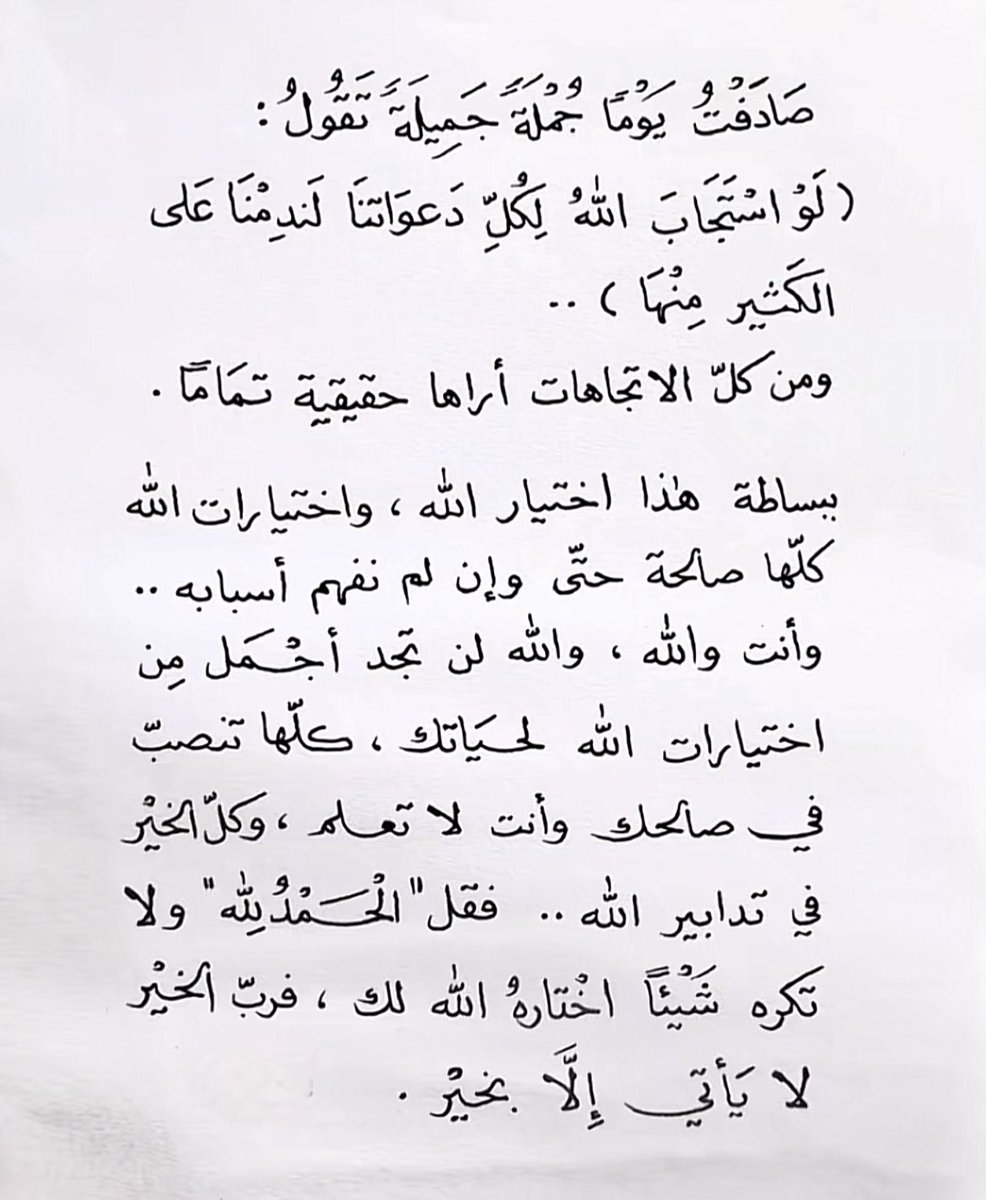 صَادَفْتُ يَوْمًا جُمْلَةً جَمِيلَةً تَقُولُ :
( لَوْ اسْتَجَابَ اللهُ لِكُلِّ دَعوَاتنَا لَندِمْنَا عَلى
الكَثير مِنْهَا ) ..
ومن كلّ الاتجاهات أراها حقيقية تمَامًا .
ببساطة هٰذا اختيار الله ، واختيارات الله
كلّها صالحة حتّى وإن لم نفهم أسبابه ..
وأنت والله ، والله لن تجد أجْمَل مِن
اختيارات الله لحيَاتك ، كلّها تنصبّ
في صالحك وأنت لا تعلم ، وكلّ الخيْر
في تدابير الله .. فقل "الْحَمْدُ لِلّه" ولا
تَكره شَيْئاً اخْتارهُ الله لك ، فربّ الخيْر
لا يَأتي إلَّا بخيْر .